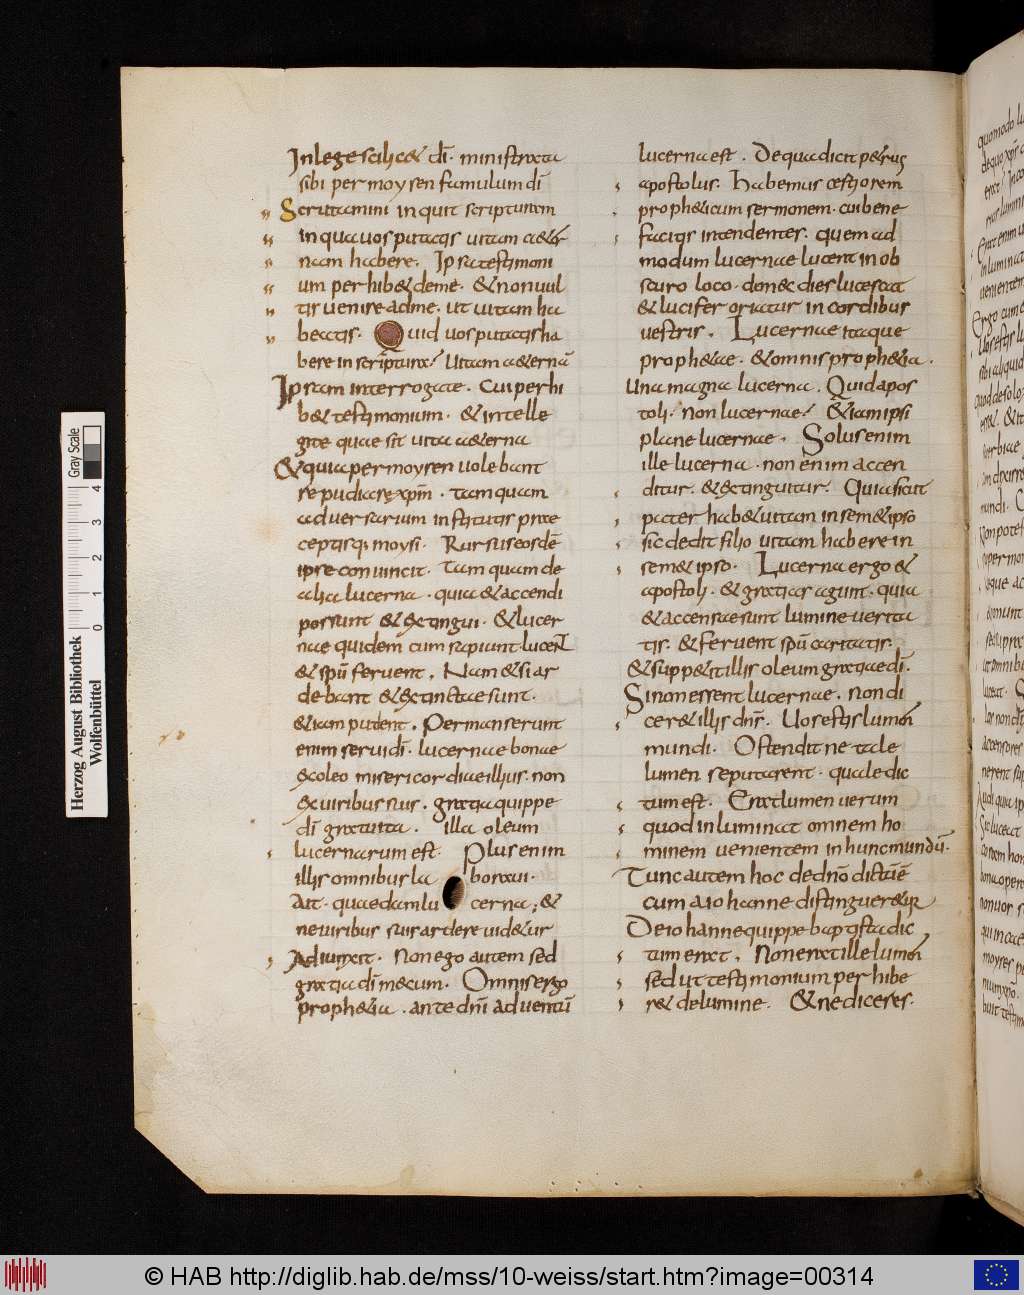 In lege scilicet dī· ministrata
sibi per moysen famulum dī
Scrutamini inquit scripturam
in qua uos putatis uitam aeter
nam habere· Ipsa testimoni
um perhibet de me· & non uul
tis uenire ad me· ut uitam ha
beatis· Quid uos putatis ha
bere in scriptura? Uitam aeternā
Ipsam interrogate· Cui perhi
bet testimonium· & intelle
gite quae sit uita aeterna
& quia per moysen uolebant
repudiare xpm̄· tamquam
aduersarium institutis prae
ceptisq; moysi· Rursus eosdē
ipse conuincit· Tamquam de
alia lucerna· quia & accendi
possunt & extingui· & lucer
nae quidem cum sapiunt lucent
& spū feruent· Nam & si ar
debant & extinctae sunt·
& iam putent· Permanserunt
enim serui dī· lucernae bonae
ex oleo misericordiae illius· non
ex uiribus suis· gratia quippe
dī gratuita· illa oleum
lucernarum est· Plus enim
illis omnibus la boraui·
Ait· quaedam lu cerna; &
ne uiribus suis ardere uideretur
Adiunxit· Non ego autem sed
gratia dī mecum· Omnis ergo
prophetia· ante dn̄i aduentū
lucerna est· De qua dicit petrus
apostolus· Habemus certiorem
propheticum sermonem· cui bene
facitis intendentes· quem ad
modum lucernae lucenti in ob
scuro loco· donec dies lucescat
& lucifer oriatur in cordibus
uestris· Lucernae itaque
prophetae· & omnis prophetia·
Una magna lucerna· Quid apos
toli· non lucernae? Etiam ipsi
plane lucernae· Solus enim
ille lucerna· non enim accen
ditur· & extinguitur· Quia sicut
pater habet uitam in semetipso
sic dedit filio uitam habere in
semetipso· Lucerna ergo &
apostoli· & gratias agunt· quia
& accensae sunt lumine uerita
tis· & feruent spū caritatis·
& suppetit illis oleum gratiae dī·
Si non essent lucernae· non di
ceret illis dn̄s· Uos estis lumen
mundi· Ostendit ne tale
lumen se putarent· quale dic
tum est· Erat lumen uerum
quod inluminat omnem ho
minem uenientem in hunc mundū·
Tunc autem hoc de dn̄o dictū ē
cum a iohanne distingueretur
De iohanne quippe baptista dic
tum erat· Non erat ille lumen
sed ut testimonium perhibe
ret de lumine· & ne diceres·
Herzog August Bibliothek
Wolfenbüttel
Gray Scale
0 1 2 3 4
© HAB http://diglib.hab.de/mss/10-weiss/start.htm?image=00314